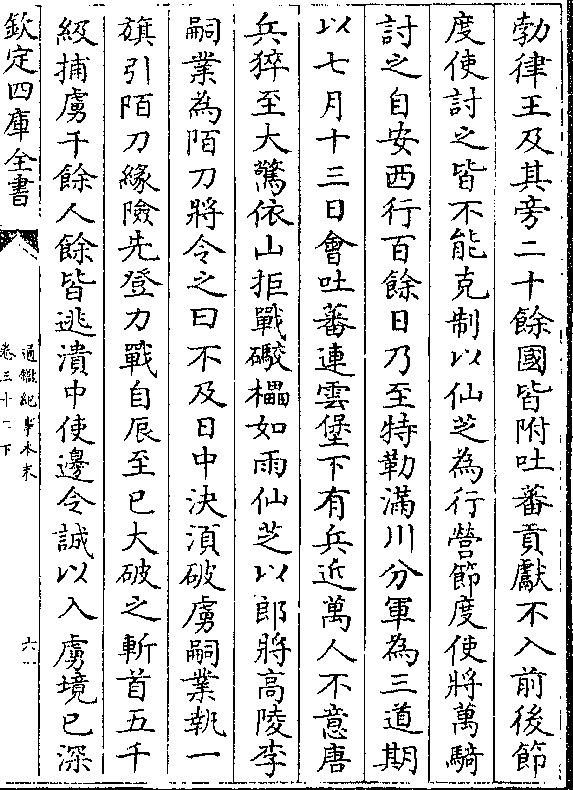 勃律王及其旁二十餘國皆附吐蕃貢獻不入前後節
度使討之皆不能克制以仙芝為行營節度使將萬騎
討之自安西行百餘日乃至特勒滿川分軍為三道期
以七月十三日會吐蕃連雲堡下有兵近萬人不意唐
兵猝至大驚依山拒戰礮櫑如雨仙芝以郎將高陵李
嗣業為陌刀將令之曰不及日中決須破虜嗣業執一
旗引陌刀緣險先登力戰自辰至巳大破之斬首五千
級捕虜千餘人餘皆逃潰中使邊令誠以入虜境已深
欽定四庫全書
通鑑紀事本末
卷三十一下
六